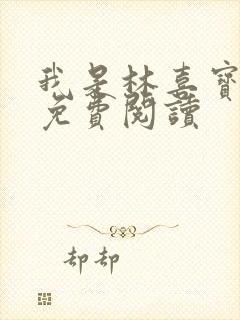 我是林喜寶
免費閱讀
却却